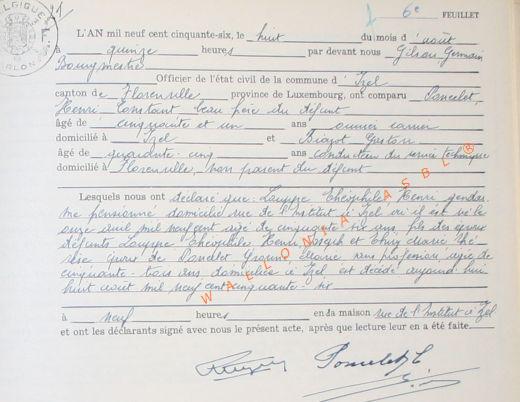 6e FEUILLET
L'AN mil neuf cent cinquante-six, le huit du mois d'août
à quinze heures par devant nous Gilson Germain
Bourgmestre
Officier de l'état civil de la commune d'Izel
canton de Florenville province de Luxembourg, ont comparu Poncelet,
Henri Constant beau père du défunt
âgé de cinquante et un ans ouvrier carrier
domicilié à Izel et Biazot Gaston
âgé de quarante-cinq ans conducteur du service technique
domicilié à Florenville, non parent du défunt
Lesquels nous ont déclaré que Louppe Théophile Henri gendar-
me pensionné domicilié rue de l'Institut à Izel où il est né le
onze mil neuf cent âgé de cinquante ans, fils des époux
défunts Louppe Théophile Henri Joseph et Marie Thé-
époux de Poncelet Marie sans profession âgée de
cinquante-trois ans domiciliée à Izel est décédé aujourd'hui
huit août mil neuf cent cinquante-six
à neuf heures en da maison rue de l'Institut à Izel
et ont les déclarants signé avec nous le présent acte, après que lecture leur en a été faite
Poncelet H
WALLONIA ASBL ®